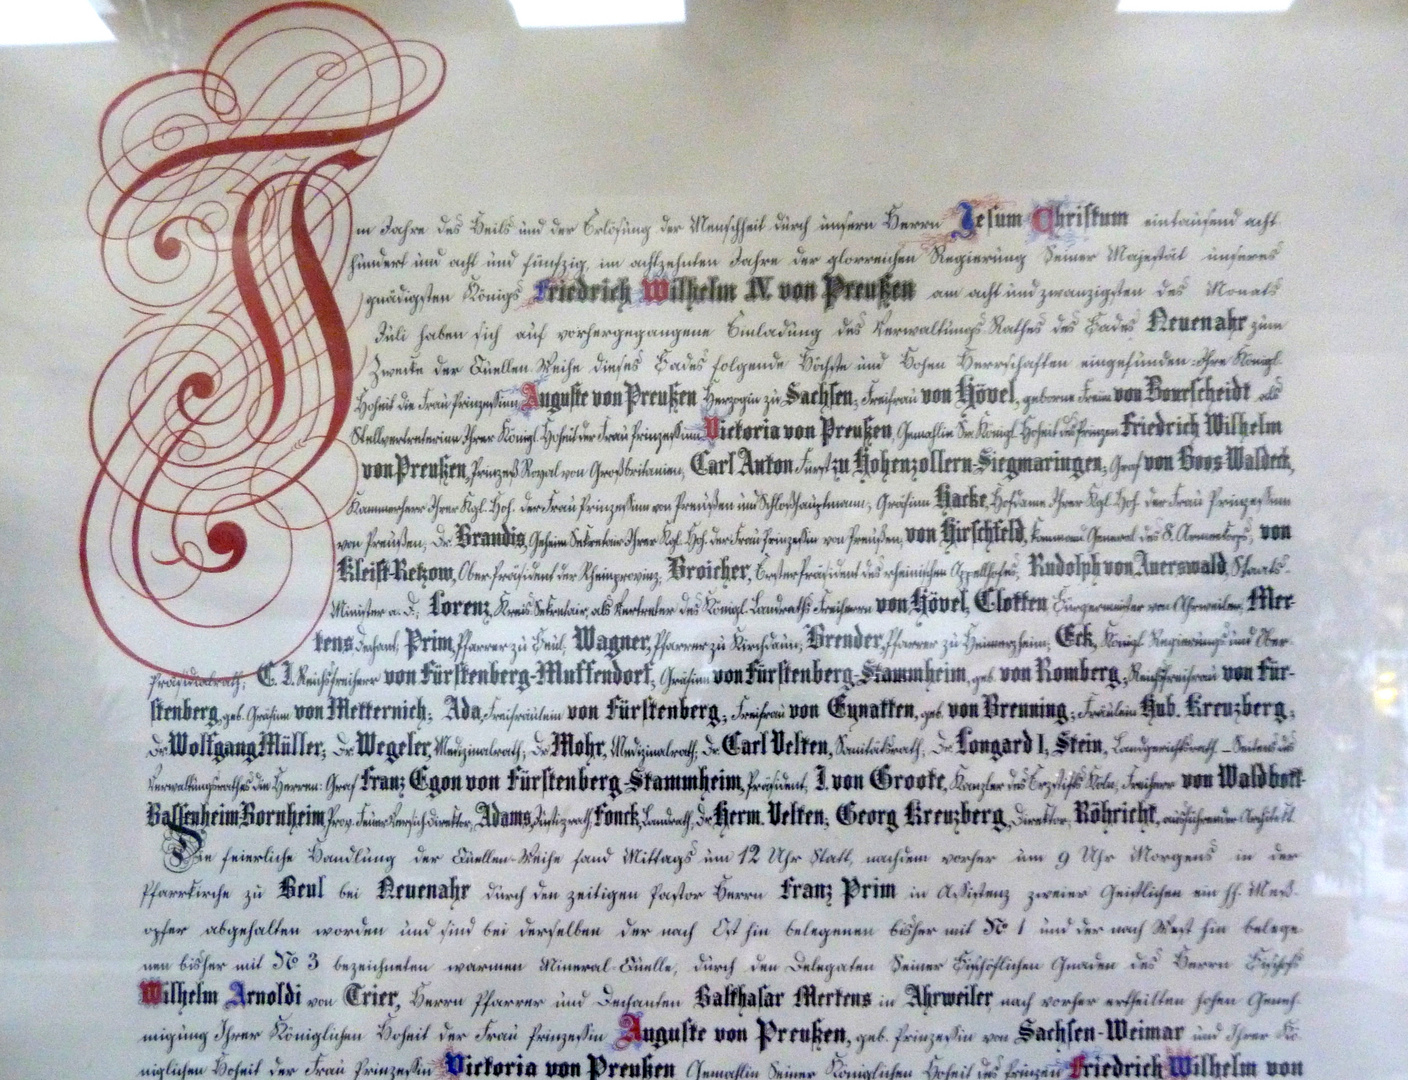 Im Jahre des Heils und der Erlösung der Menschheit durch unsern Herrn Jesum Christum eintausend acht
hundert und acht und fünfzig, im achtzehnten Jahre der glorreichen Regierung Seiner Majestät unseres
gnädigsten Königs Friedrich Wilhelm IV. von Preußen am acht und zwanzigsten des Monats
Juli haben sich auf vorhergegangene Einladung des Verwaltungs-Rathes des Bades Neuenahr zum
Zwecke der Quellen-Weihe dieses Bades folgende Höchste und Hohen Herrschaften eingefunden: Ihre Königl.
Hoheit die Frau Prinzessinn Auguste von Preußen Herzogin zu Sachsen; Freifrau von Hövel, geborne Freiin von Bourscheidt als
Stellvertreterinn Ihrer Königl. Hoheit der Frau Prinzessinn Victoria von Preußen, Gemahlin Sr. Königl. Hoheit des Prinzen Friedrich Wilhelm
von Preußen, Prinzeß Royal von Großbritanien; Carl Anton Fürst zu Hohenzollern-Siegmaringen; Graf von Boos-Waldeck,
Kammerherr Ihrer Kgl. Hoh. der Frau Prinzessinn von Preußen und Schloßhauptmann; Gräfinn Hacke, Hofdame Ihrer Kgl. Hoh. der Frau Prinzessinn
von Preußen; Dr. Brandis, Geheim Sekretair Ihrer Kgl. Hoh. der Frau Prinzessin von Preußen; von Hirschfeld, Command. General des 8. Armeekorps; von
Kleist-Retzow, Ober-Präsident der Rheinprovinz; Broicher, Erster Präsident des rheinischen Appellhofes; Rudolph von Auerswald, Staats-
Minister a. D.; Lorenz, Kreis Sekretair, als Vertreter des Königl. Landraths Freiherrn von Hövel; Clotten Bürgermeister von Ahrweiler; Mer-
tens Dechant; Prim, Pfarrer zu Beul; Wagner, Pfarrer zu Kirchdaun; Brender, Pfarrer zu Heimerzheim; Eck, Königl. Regierungs und Ober-
Präsidialrath; C. J. Reichsfreiherr von Fürstenberg-Muffendorf; Gräfinn von Fürstenberg-Stammheim, geb. von Romberg; Reichsfreifrau von Für-
stenberg, geb. Gräfinn von Metternich; Ada, Freifräulein von Fürstenberg; Freifrau von Eynatten, geb. von Breuning; Fräulein Hub. Kreuzberg;
Dr. Wolfgang Müller; Dr. Wegeler, Medizinalrath; Dr. Mohr, Medizinalrath; Dr. Carl Velten, Sanitätsrath; Dr. Longard I; Stein, Landgerichtsrath – Seitens des
Verwaltungsrathes die Herren: Graf Franz Egon von Fürstenberg-Stammheim, Präsident; J. von Groote, Kanzler des Erzstifts Köln; Freiherr von Waldbott-
Bassenheim Bornheim, Prov. Feuer Versich. Direktor; Adams, Justizrath; Fonck, Landrath; Dr. Herm. Velten; Georg Kreuzberg, Direktor; Röhricht, ausführender Architekt.
Die feierliche Handlung der Quellen-Weihe fand Mittags um 12 Uhr Statt, nachdem vorher um 9 Uhr Morgens in der
Pfarrkirche zu Beul bei Neuenahr durch den zeitigen Pastor Herrn Franz Prim in Assistenz zweier Geistlichen ein hh. Meß-
opfer abgehalten worden und sind bei derselben der nach Ost hin belegenen bisher mit No 1 und der nach West hin belege
nen bisher mit No 3 bezeichneten warmen Mineral-Quelle, durch den Delegaten Seiner Bischöflichen Gnaden des Herrn Bischofs
Wilhelm Arnoldi von Trier, Herrn Pfarrer und Dechanten Balthasar Mertens in Ahrweiler nach vorher ertheilten hohen Geneh-
migung Ihrer Königlichen Hoheit der Frau Prinzessin Auguste von Preußen, geb. Prinzessin von Sachsen-Weimar und Ihrer Kö-
niglichen Hoheit der Frau Prinzessin Victoria von Preußen Gemahlin Seiner Königlichen Hoheit des Prinzen Friedrich Wilhelm von